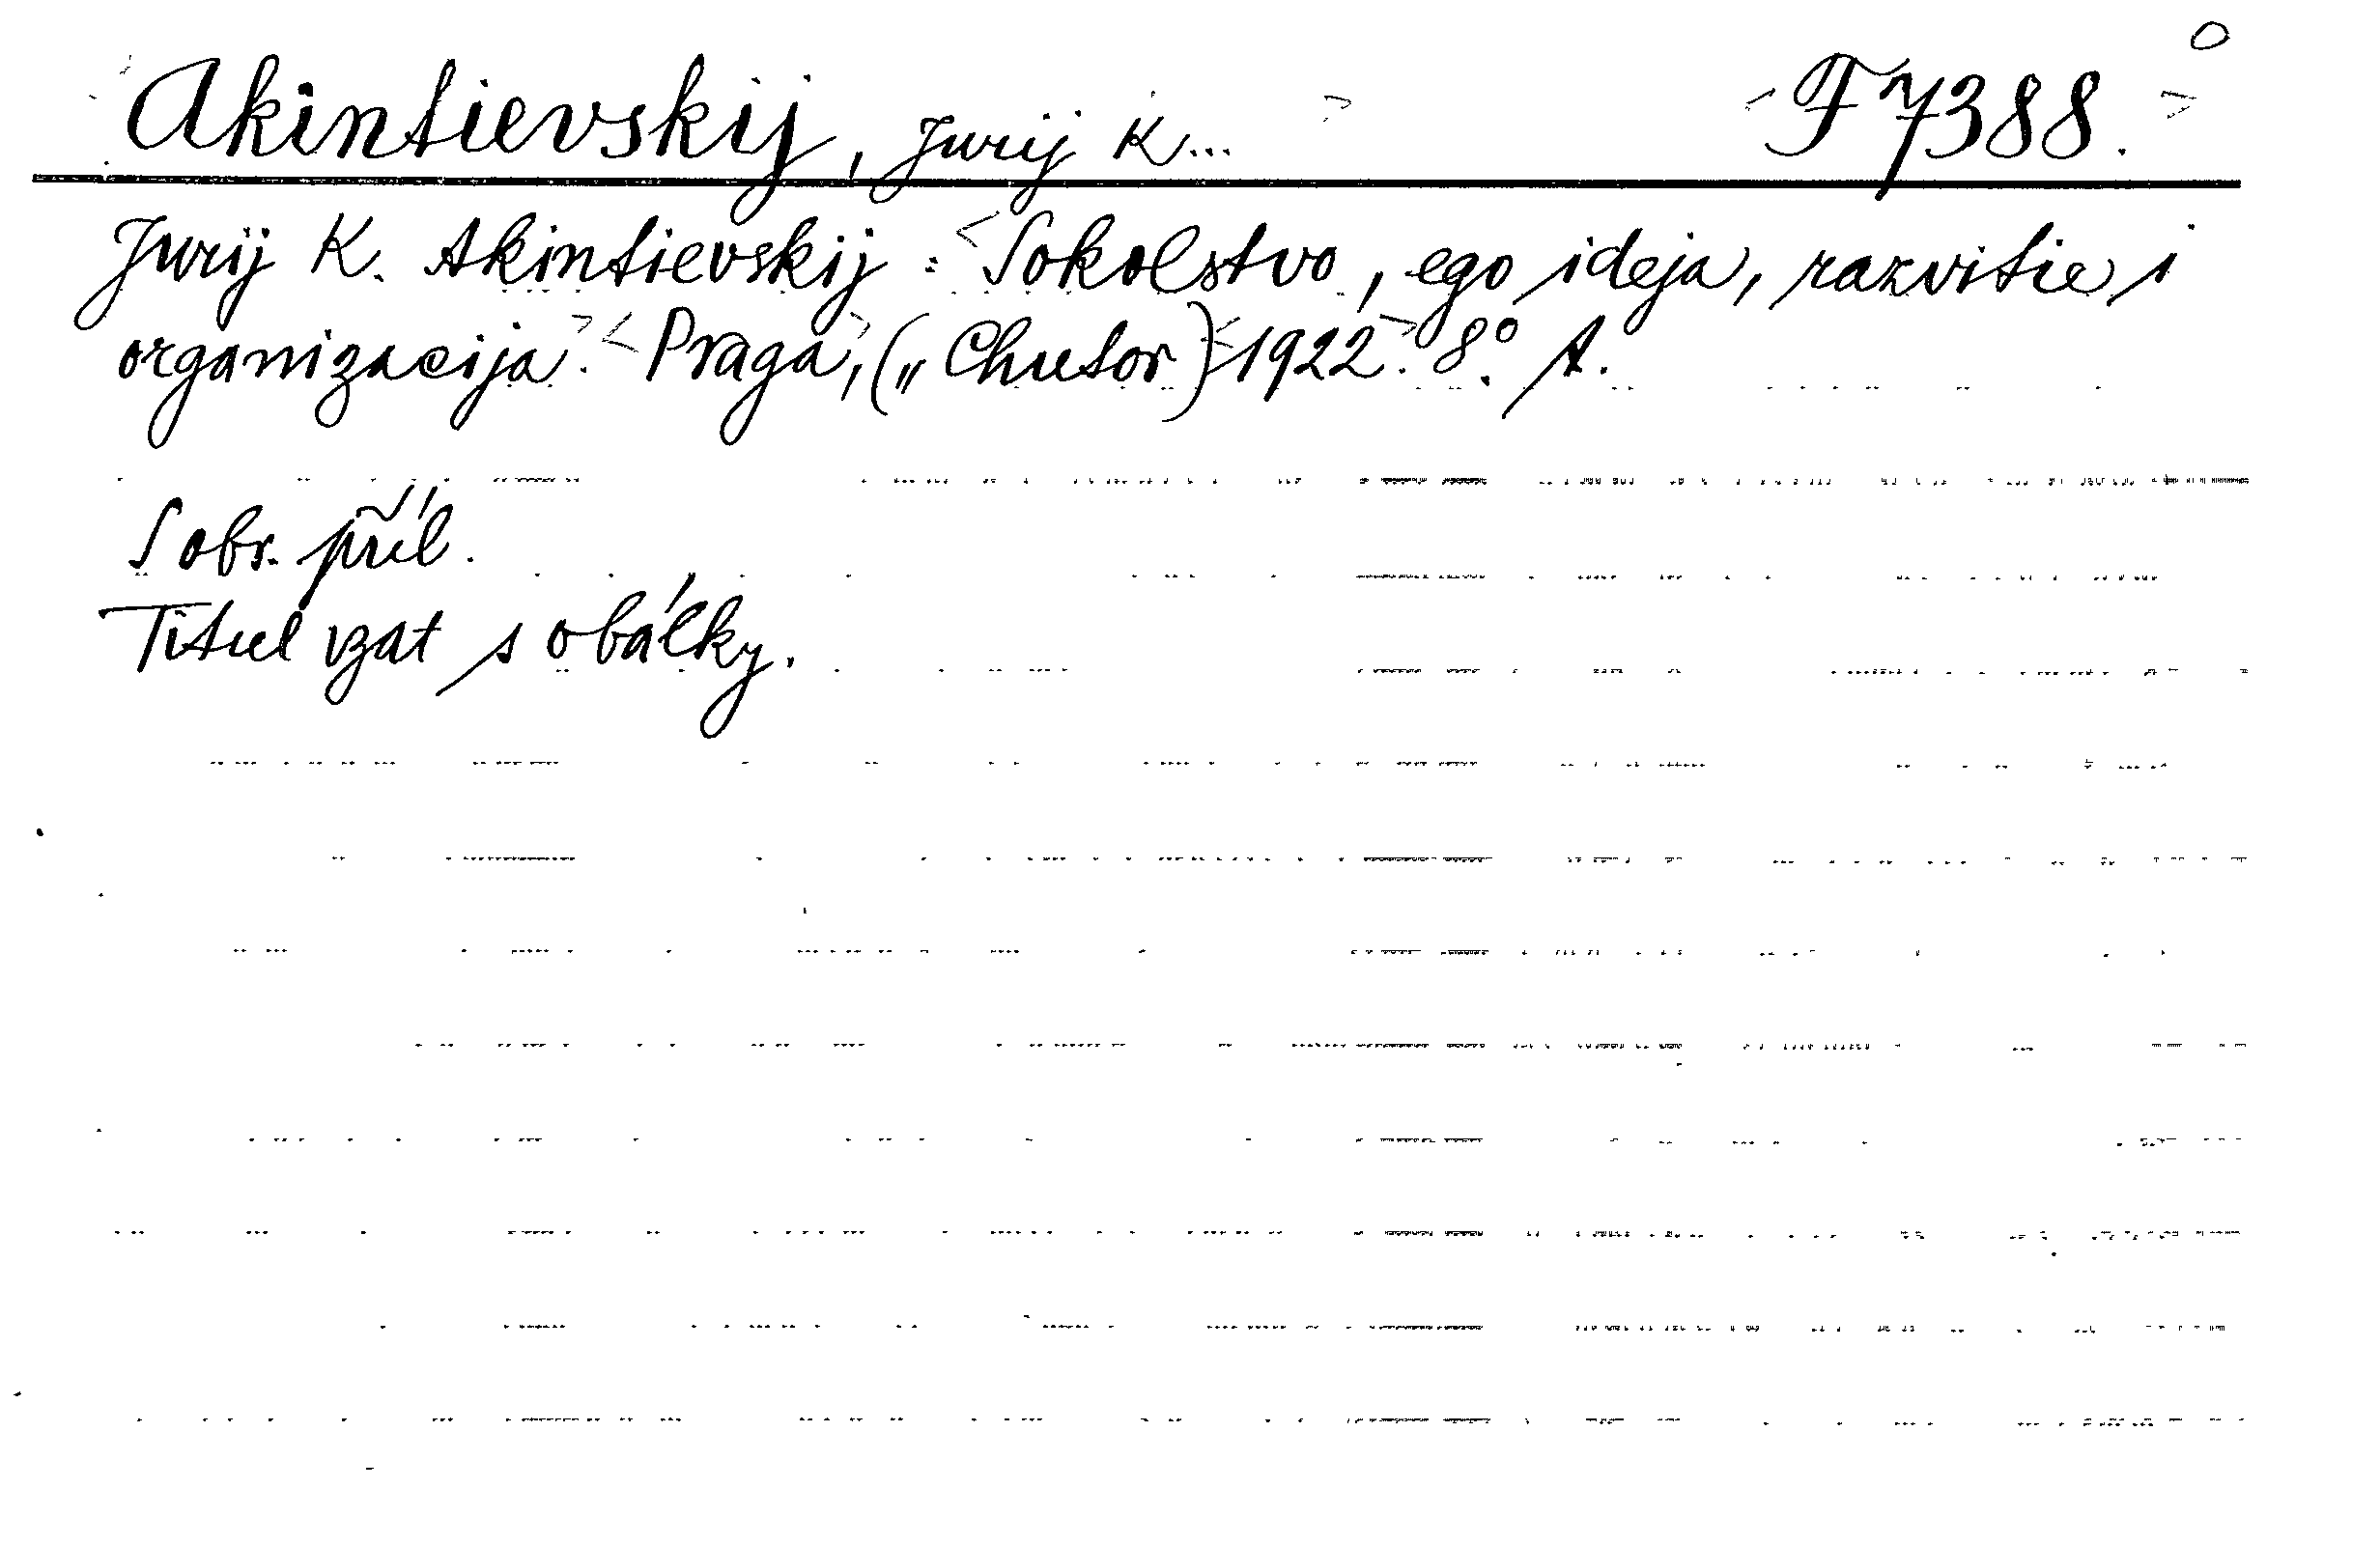 Akintievskij, Jurij K... F 7388.
Jurij K. Akintievskij: Sokolstvo, ego ideja, razvitie i
organizacija. Praga, („Chutor) 1922. 8°. A.
S obr. příl.
Titul vzat s obálky.